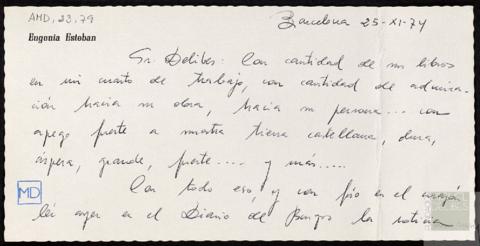 AMD, 23, 79
Barcelona 25-XI-74
Eugenia Estoban
Sr. Delibes: Con cantidad de sus libros
en mi cuarto de trabajo, con cantidad de admira-
ción hacia su obra, hacia su persona... con
apego fuerte a nuestra tierra castellana, dura,
áspera, grande, fuerte.... y más.....
Con todo eso, y con frío en el corazón
leí ayer en el Diario de Burgos la noticia
MD